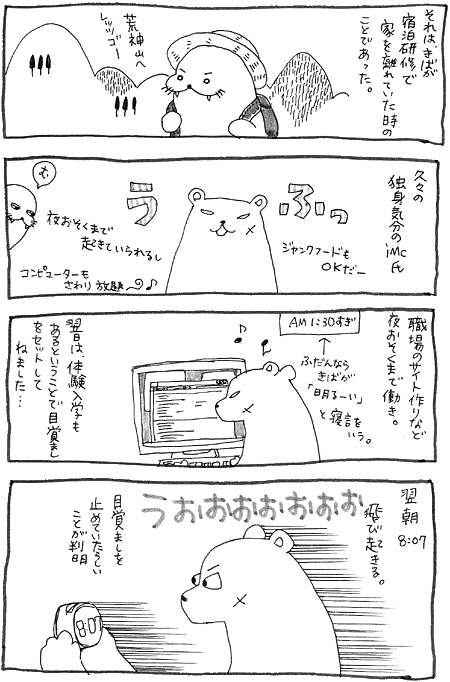 それは、きばが
宿泊研修で
家を離れていた時の
ことであった。
荒神山へ
レッツゴー
久々の
独身気分の
iMc氏
うふっ
ジャンクフードも
OKだー
む
夜おそくまで
起きていられるし
コンピューターも
さわり放題〜♪
職場のサイト作りなど
夜おそくまで働き。
AM1:30すぎ
ふだんなら
きばが
「明るーい」
と寝言を
いう。
翌日は、体験入学も
あるということで目覚まし
をセットして
ねました…
翌朝
8:07
飛び起きる。
うおおおおおおお
目覚ましを
止めていたらしい
ことが判明
8:07